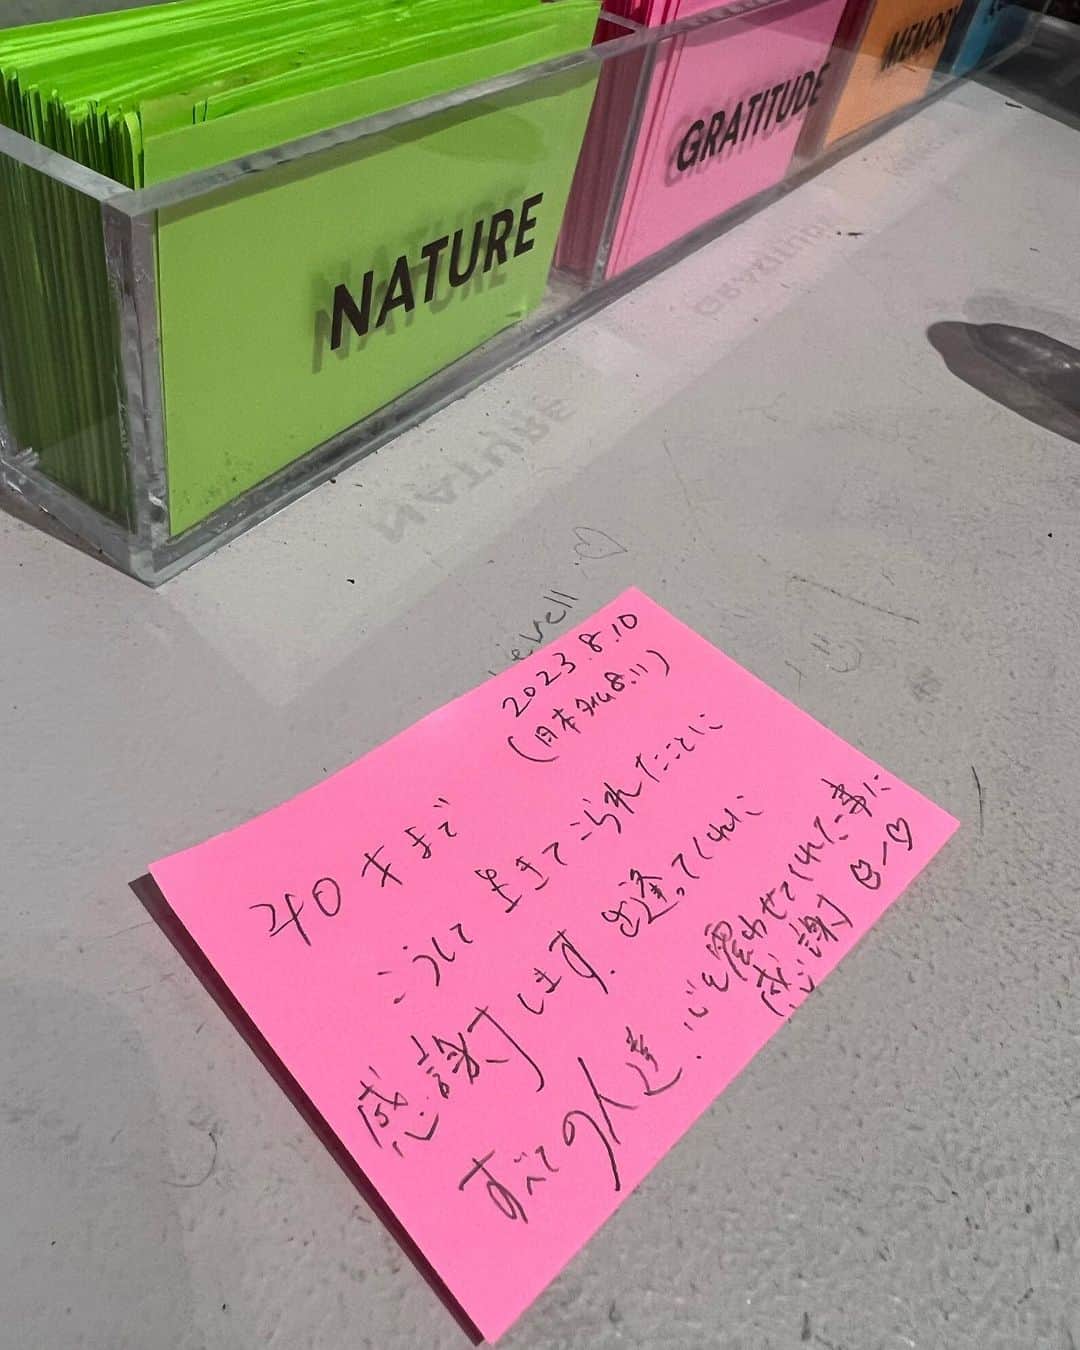 NATURE
GRATITUDE
MEMORY
2023.8.10
(日本では8.11)
40才まで
こうして生きてこられたことに
感謝します。出逢ってくれた
すべての人達、心を震わせてくれた事に
感謝